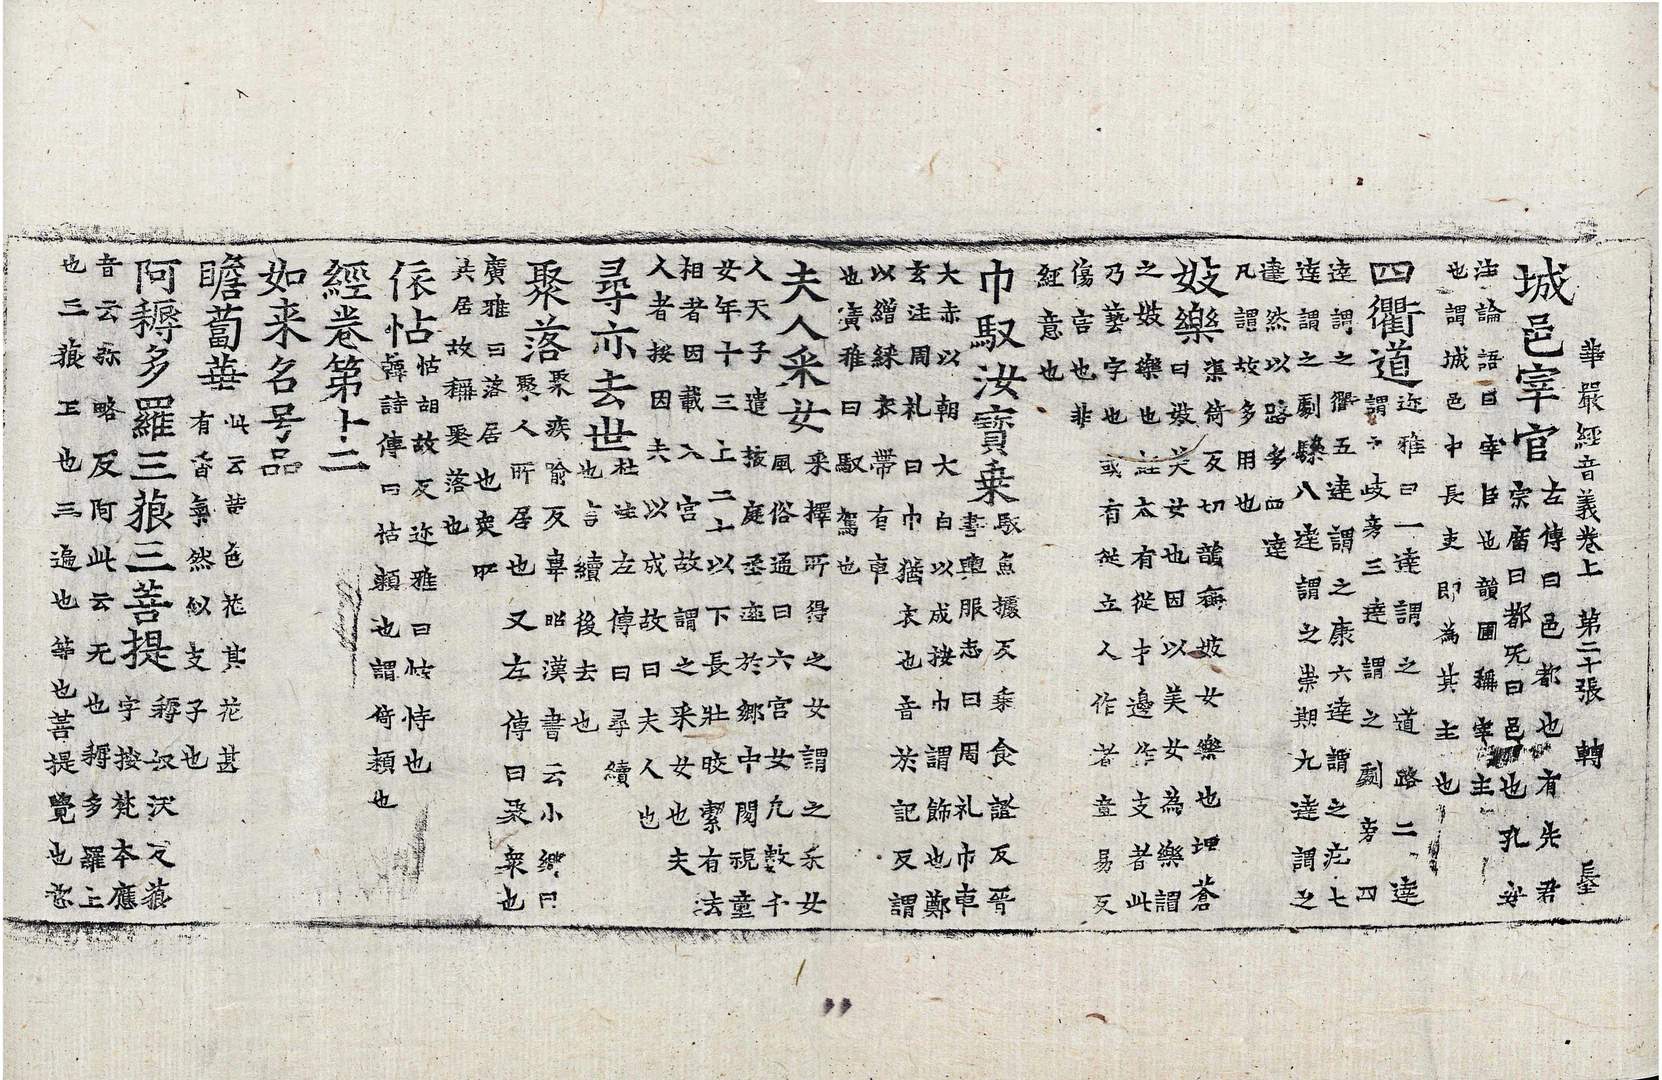 華嚴經音義卷上 第二十張 轉
城邑宰官左傳曰邑都也有先君
宗廟曰都旡曰邑也孔安
注論語曰宰臣也韻圃稱宰主
也謂城邑中長吏即為其主也
四衢道迩雅曰一達謂之道路二達
謂之歧旁三達謂之劇旁四
達謂之衢五達謂之康六達謂之疘七
達謂之劇驂八達謂之崇期九達謂之
逵然以路多四達
凡謂故多用也
妓樂渠倚反切韻稱妓女樂也埤蒼
曰妓美女也因以美女為樂謂
之妓樂也註太有從才邊作支者此
乃藝字也或有從立人作者音易反
傷言也非
經意也
巾馭汝寳乗馭魚據反乗食證反晉
書輿服志曰周礼巾車
大赤以朝大白以成按巾謂飾也鄭
玄注周礼曰巾猶衣也音義記反謂
以繒綵衣帶有車
也廣雅曰馭駕也
夫人采女采擇所得之女謂之采女
風俗通曰六宮女九數千
人天子遣掖庭丞巡於鄉中閱視童
女年十三上二十以下長壯皎潔有法
相者因載入宮故謂之采女也夫
人者按因夫以成故曰夫人也
尋亦去世杜注左傳曰尋續
也言續後去也
聚落聚疾喻反辜昭漢書云小鄉曰
聚人所居也又左傳曰聚衆也
廣雅曰落居也衆中
共居故稱聚落也
依怙怙胡故反迩雅曰怙恃也
韓詩傳曰怙頼也謂倚頼也
經卷第十二
如来名号品
瞻蔔華此云苦色花其花甚
有香氣然似支子也
阿耨多羅三藐三菩提耨汝沃反藐
字按梵本應
音云弥略反阿此云无也耨多羅上
也三藐正也三遍也等也菩提覺也